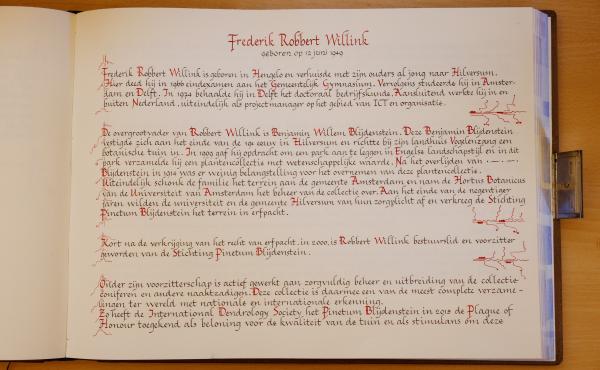 Frederik Robbert Willink
geboren op 12 juni 1949
Frederik Robbert Willink is geboren in Hengelo en verhuisde met zijn ouders al jong naar Hilversum.
Hier deed hij in 1966 eindexamen aan het Gemeentelijk Gymnasium. Vervolgens studeerde hij in Amster-
dam en Delft. In 1974 behaalde hij in Delft het doctoraal bedrijfskunde. Aansluitend werkte hij in en
buiten Nederland, uiteindelijk als projectmanager op het gebied van ICT en organisatie.
De overgrootvader van Robbert Willink is Benjamin Willem Blijdenstein. Deze Benjamin Blijdenstein
vestigde zich aan het einde van de 19e eeuw in Hilversum en richtte bij zijn landhuis Vogelenzang een
botanische tuin in. In 1909 gaf hij opdracht om een park aan te leggen in Engelse landschapstijl en in dit
park verzamelde hij een plantencollectie met wetenschappelijke waarde. Na het overlijden van
Blijdenstein in 1914 was er weinig belangstelling voor het overnemen van deze plantencollectie.
Uiteindelijk schonk de familie het terrein aan de gemeente Amsterdam en nam de Hortus Botanicus
van de Universiteit van Amsterdam het beheer van de collectie over. Aan het einde van de negentiger
jaren wilden de universiteit en de gemeente Hilversum van hun zorgplicht af en verkreeg de Stichting
Pinetum Blijdenstein het terrein in erfpacht.
Kort na de verkrijging van het recht van erfpacht, in 2000, is Robbert Willink bestuurslid en voorzitter
geworden van de Stichting Pinetum Blijdenstein.
Onder zijn voorzitterschap is actief gewerkt aan zorgvuldig beheer en uitbreiding van de collectie
coniferen en andere naaktzadigen. Deze collectie is daarmee een van de meest complete verzame-
lingen ter wereld met nationale en internationale erkenning.
Zo heeft de International Dendrology Society het Pinetum Blijdenstein in 2018 de Plaque of
Honour toegekend als beloning voor de kwaliteit van de tuin en als stimulans om deze